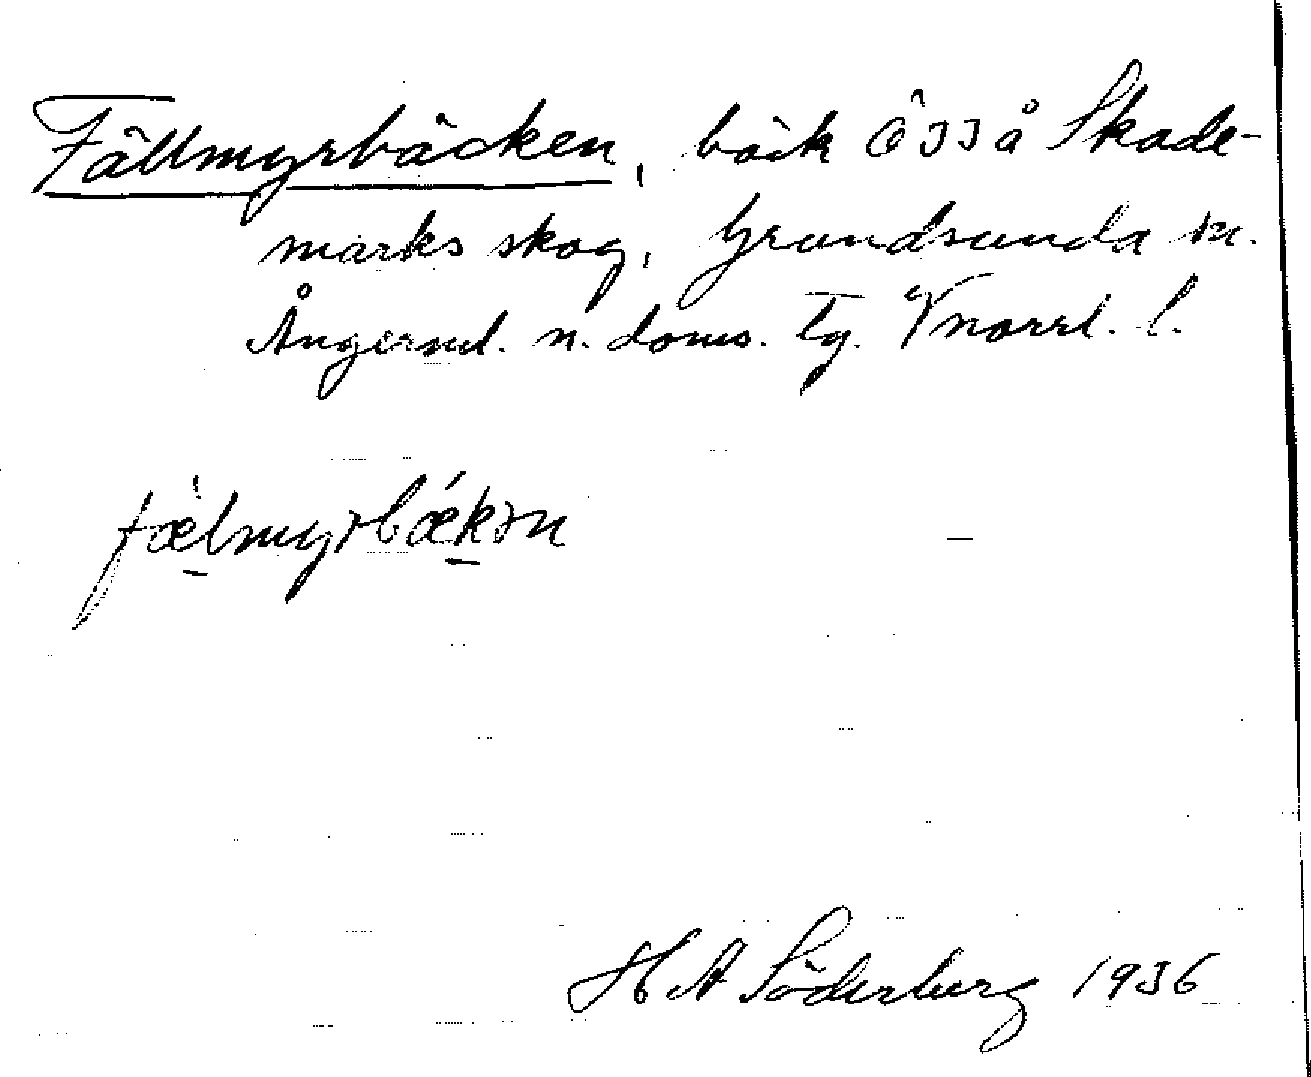 Fällmyrbäcken, bäck Ö 33 å Skade-
marks skog, Grundsunda sn.
Ångerml. n. doms. tg. Vnorrl. l.
fælmyrbækən
H A Söderberg 1936